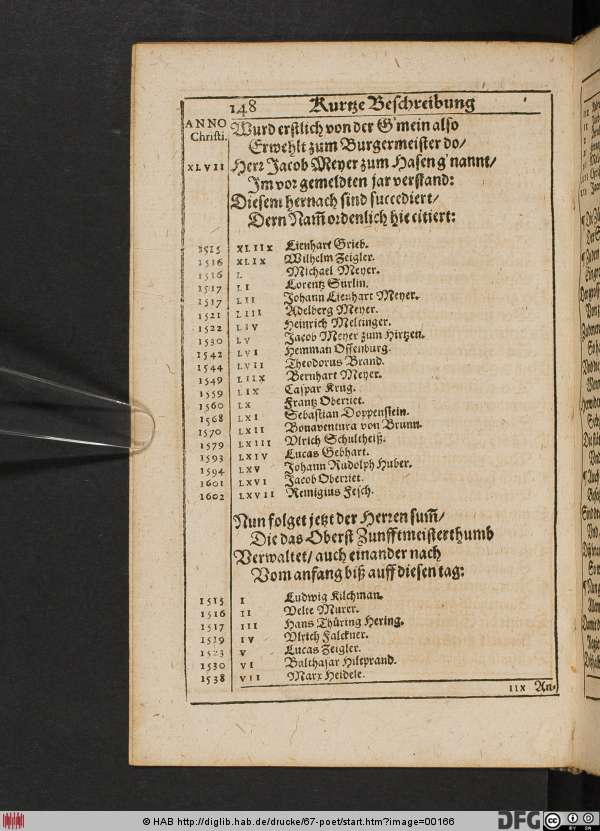 148 Kurtze Beschreibung
ANNO
Christi.
Wurd erstlich von der G'mein also
Erwehlt zum Burgermeister do/
XLVII Herr Jacob Meyer zum Hasen g'nannt/
Im vor gemeldten jar verstand:
Diesem hernach sind succediert/
Dern Nam̄ ordenlich hie citiert:
1515 XLIIX Lienhart Grieb.
1516 XLIX Wilhelm Zeigler.
1516 L Michael Meyer.
1517 LI Lorentz Surlin.
1517 LII Johann Lienhart Meyer.
1521 LIII Adelberg Meyer.
1522 LIV Heinrich Meltinger.
1530 LV Jacob Meyer zum Hirtzen.
1542 LVI Hemman Offenburg.
1544 LVII Theodorus Brand.
1549 LIIX Bernhart Meyer.
1559 LIX Caspar Krug.
1560 LX Frantz Oberriet.
1568 LXI Sebastian Doppenstein.
1570 LXII Bonaventura von Brunn.
1579 LXIII Ulrich Schultheiß.
1593 LXIV Lucas Gebhart.
1594 LXV Johann Rudolph Huber.
1601 LXVI Jacob Oberriet.
1602 LXVII Remigius Fesch.
Nun folget jetzt der Herren sum̄/
Die das Oberst Zunfftmeisterthumb
Verwaltet/ auch einander nach
Vom anfang biß auff diesen tag:
1515 I Ludwig Kilchman.
1516 II Velte Murer.
1517 III Hans Thüring Hering.
1519 IV Ulrich Falckner.
1523 V Lucas Zeigler.
1530 VI Balthasar Hiltprand.
1538 VII Marx Heidele.
IIX An-
© HAB http://diglib.hab.de/drucke/67-poet/start.htm?image=00166
DFG